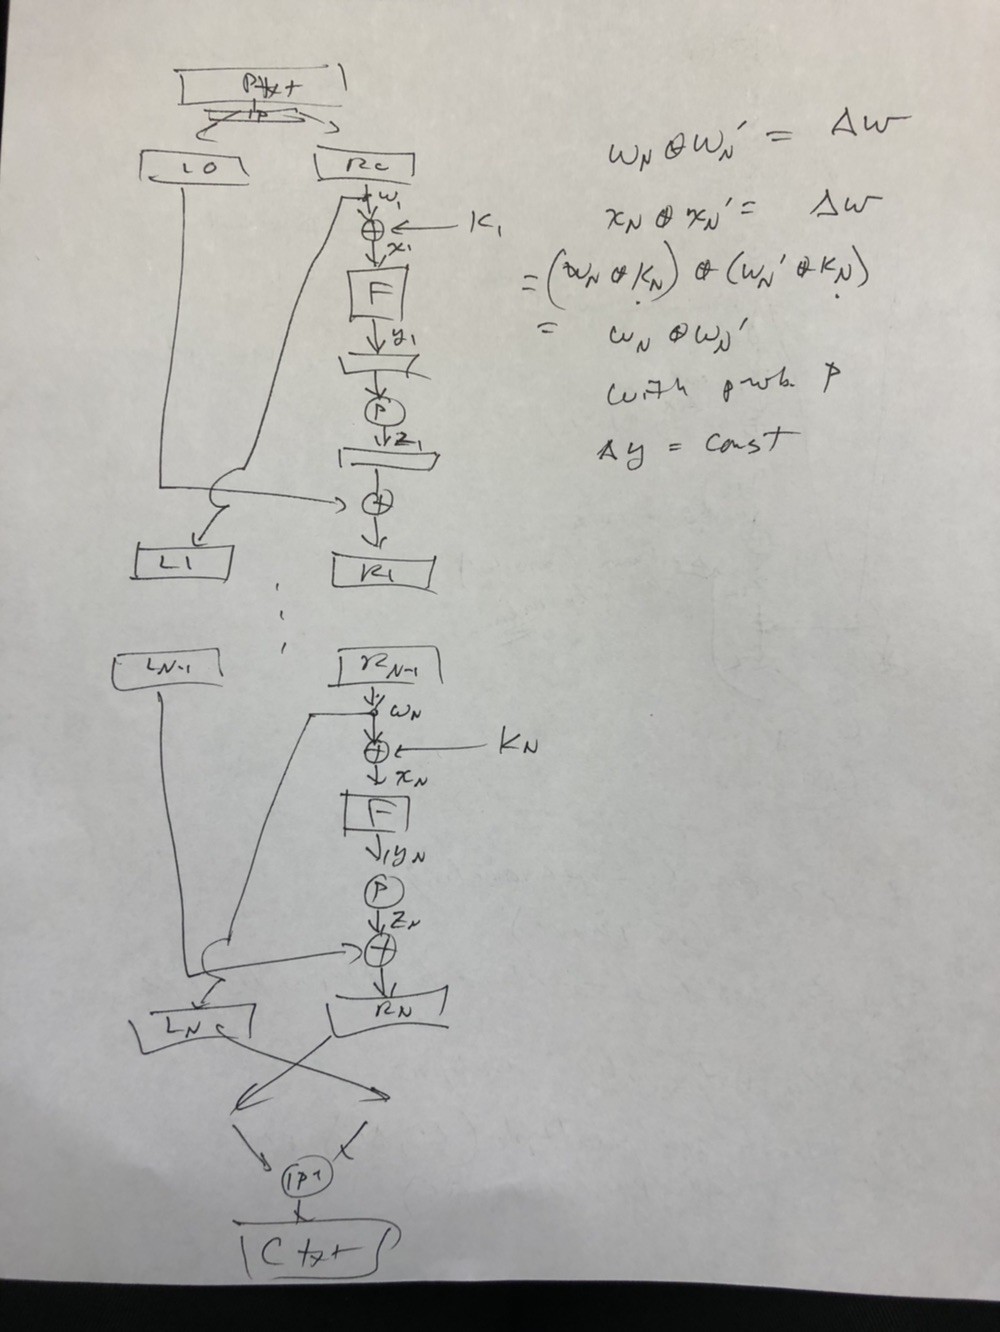 Ptxt
IP
L0 R0
w₁
K₁
x₁
F
y₁
P
z₁
L1 R1
L_N-1 R_N-1
w_N
K_N
x_N
F
y_N
P
z_N
L_N R_N
IP⁻¹
Ctxt
w_N ⊕ w_N' = Δw
x_N ⊕ x_N' = Δw
= (w_N ⊕ K_N) ⊕ (w_N' ⊕ K_N)
= w_N ⊕ w_N'
with prob. p
Δy = const